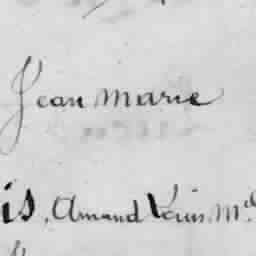 Jean Marie
is, Amand Louis. Md